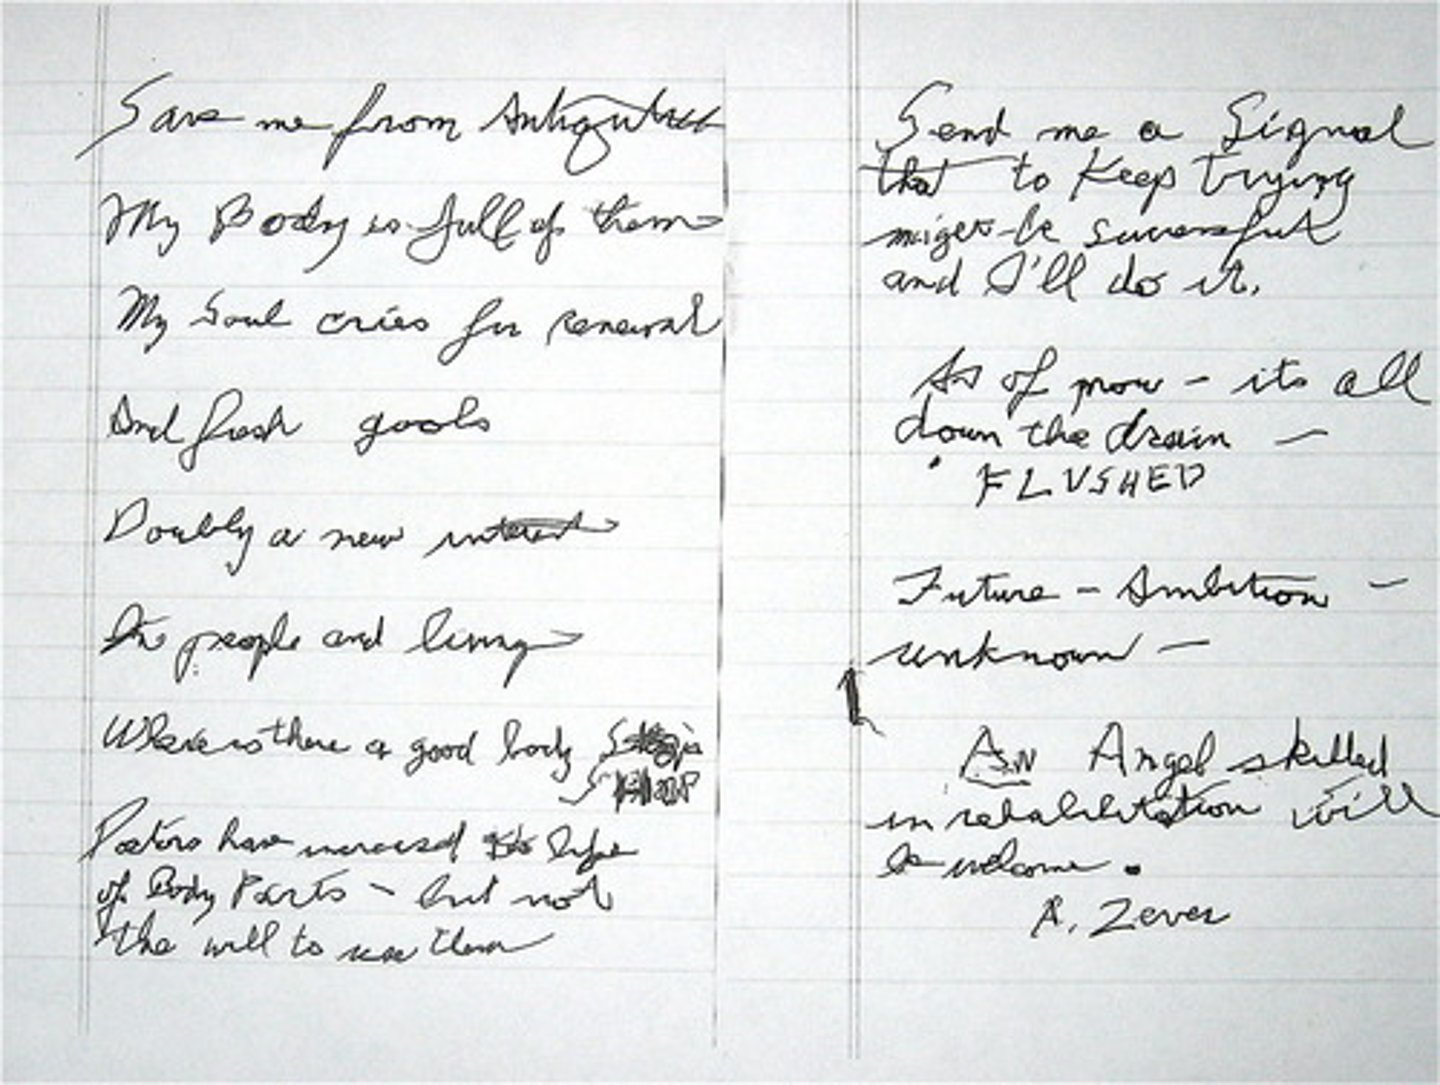 Save me from Antiquities
My Body is full of them
My Soul cries for renewal
And fresh goals
Doubly a new interest
In people and living
Where is there a good body Shop
SHOP
Doctors have increased life
of Body Parts - but not
the will to use them
Send me a Signal
that to Keep trying
might be successful
and I'll do it.
As of now - its all
down the drain -
FLUSHED
Future - Ambition -
unknown -
An Angel skilled
in rehabilitation will
be welcome.
A. Zever